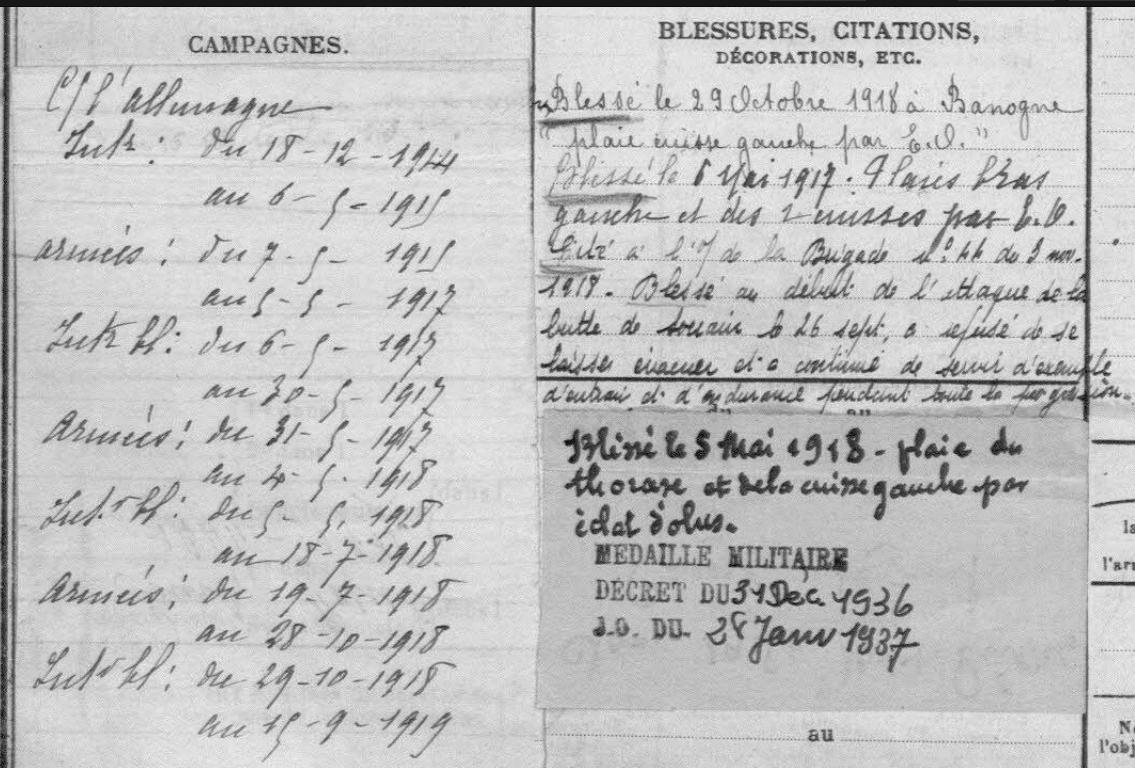 CAMPAGNES.
C/ l'allemagne
Intr : du 18-12-1914
au 6-5-1915
armées : du 7-5-1915
au 5-5-1917
Intr bl : du 6-5-1917
au 30-5-1917
Armées : du 31-5-1917
au 4-5-1918
Intr bl : du 5-5-1918
au 18-7-1918
Armées : du 19-7-1918
au 28-10-1918
Intr bl : du 29-10-1918
au 15-9-1919
BLESSURES, CITATIONS,
DÉCORATIONS, ETC.
Blessé le 29 Octobre 1918 à Banogne
"plaie cuisse gauche par E.O."
Blessé le 6 Mai 1917. Plaies bras
gauche et des 2 cuisses par E.O.
Cité à l'O/ de la Brigade n° 44 du 3 nov.
1918. Blessé au début de l'attaque de la
butte de Souain le 26 sept, a refusé de se
laisser évacuer et a continué de servir d'exemple
d'entrain et d'endurance pendant toute la progression.
du au
Blessé le 5 Mai 1918 - plaie du
thorax et de la cuisse gauche par
éclat d'obus.
MEDAILLE MILITAIRE
DÉCRET DU 31 Dec. 1936
J.O. DU. 28 Janv 1937
au
la
l'arm
l'obj